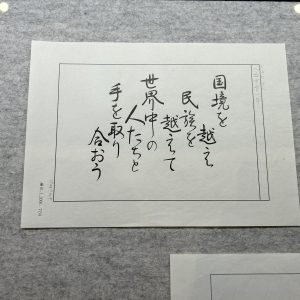 国境を
越え
民族を
越えて
世界中の
人たちと
手を取り
合おう